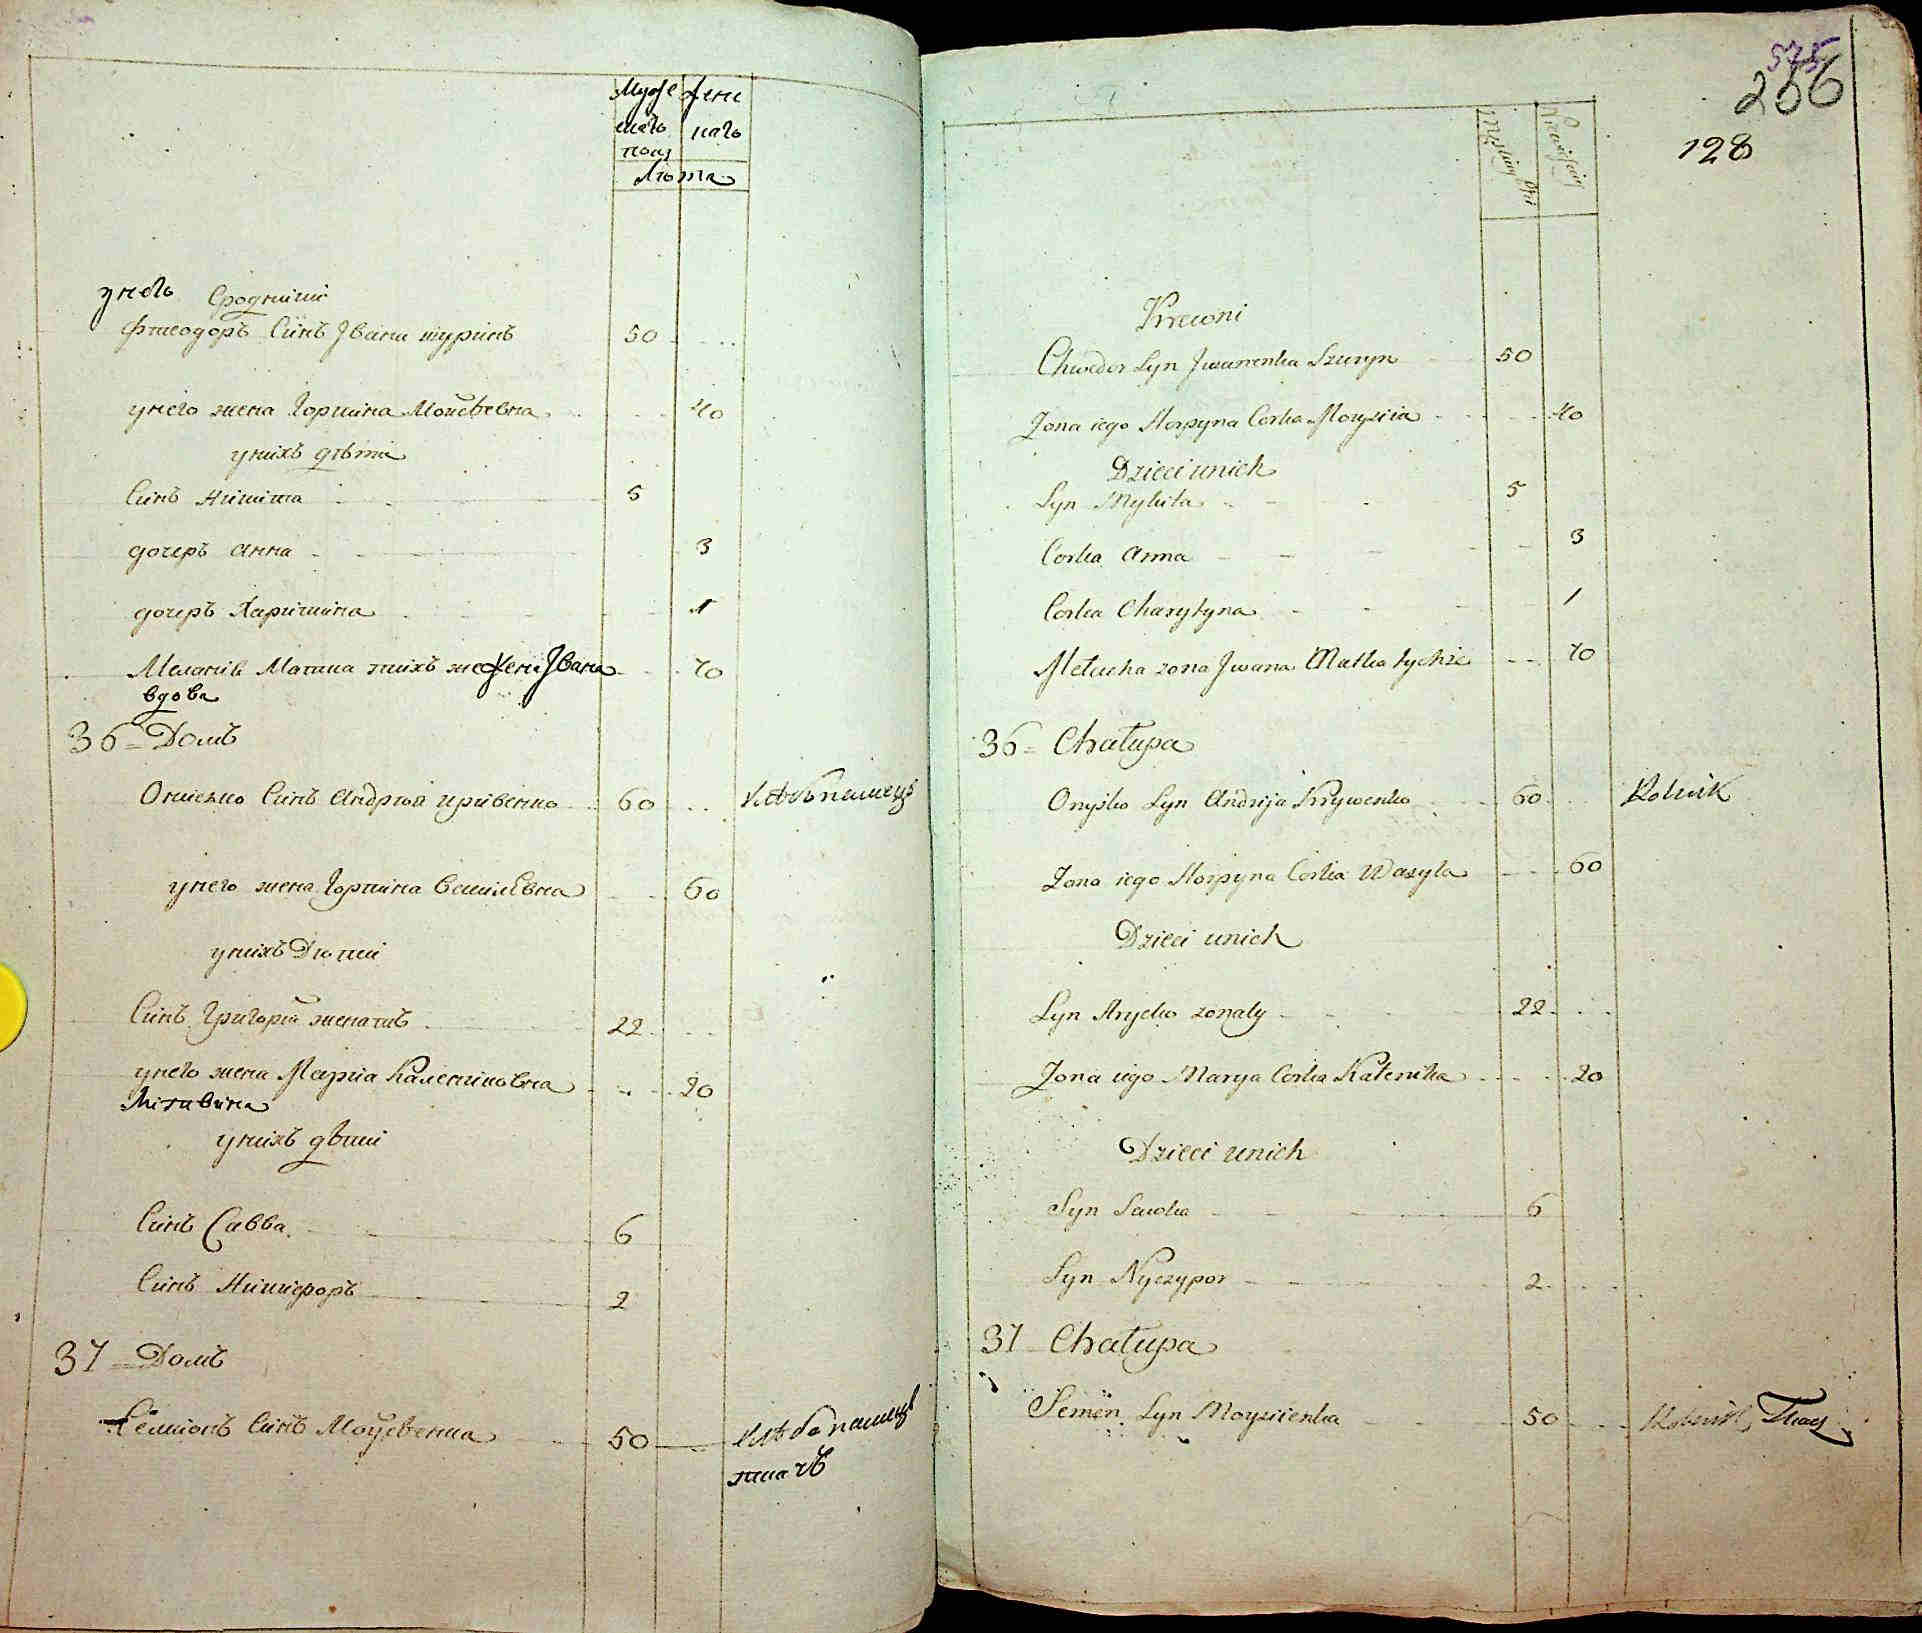 Муже Жене
скагѡ кагѡ
полу
Лѣта
у него Сродники
Фтеодоръ Синъ Ивана щуринъ 50
у него жена Горпина Мойсѣевна 40
у нихъ дѣти
Синъ Никита 5
дочеръ Анна 3
дочеръ Харитина 1
Меланія Матка тихъ же жена Ивана 70
вдова
36 = Домъ
Онисько Синъ Андрѣя кривенко 60 хлѣбопашецъ
у него жена Горпина Василевна 60
у нихъ Дѣти
Синъ Григорій женатъ 22
у него жена Марія Калениковна 20
Литвина
у нихъ дѣти
Синъ Савва 6
Синъ Никифоръ 2
37 = Домъ
Семионъ Синъ Мойсѣенка 50 хлѣбопашецъ
ткачъ
575
256
128
Krewni
Chwedor Syn Jwanenka Szuryn 50
Zona iego Horpyna Corka Moysiia 40
Dzieci unich
Syn Mykita 5
Corka Anna 3
Corka Charytyna 1
Mełacha zona Jwana Matka tychże 70
36 = Chałupa
Onyśko Syn Andrija Krywenko 60 Rolnik
Zona iego Horpyna Corka Wasyla 60
Dzieci unich
Syn Hryćko zonaty 22
Zona iego Marya Corka Kalenika 20
Dzieci unich
Syn Sawka 6
Syn Nyczypor 2
37 Chałupa
Semen Syn Moysiienka 50 Rolnik, Tkacz